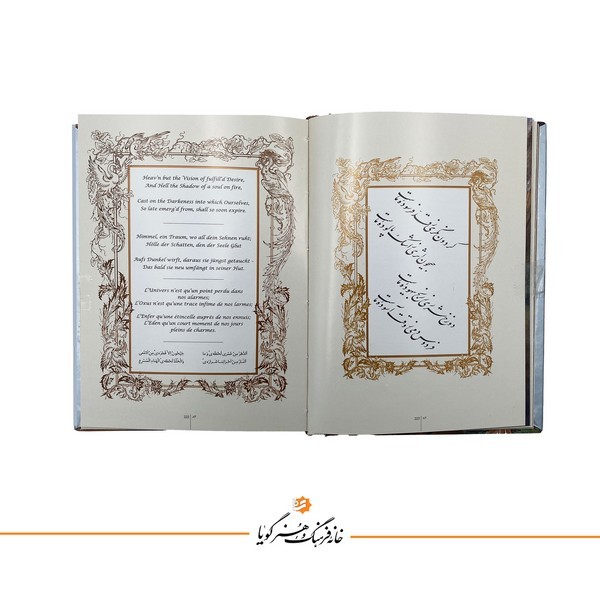 Heav'n but the Vision of fulfill'd Desire,
And Hell the Shadow of a soul on fire,
Cast on the Darkness into which Ourselves,
So late emerg'd from, shall so soon expire.
Himmel, ein Traum, wo all dein Sehnen ruht;
Hölle der Schatten, den der Seele Glut
Aufs Dunkel wirft, daraus sie jüngst getauscht -
Das bald sie neu umfängt in seiner Hut.
L'Univers n'est qu'un point perdu dans
nos alarmes;
L'Oxus n'est qu'une trace infime de nos larmes;
L'Enfer qu'une étincelle auprès de nos ennuis;
L'Eden qu'un court moment de nos jours
pleins de charmes.
گردون نگری ز قد فرسوده ماست
جیحون اثری ز اشک پالوده ماست
دوزخ شرری ز رنج بیهوده ماست
فردوس دمی ز وقت آسوده ماست
خانه فرهنگ و هنر گویا